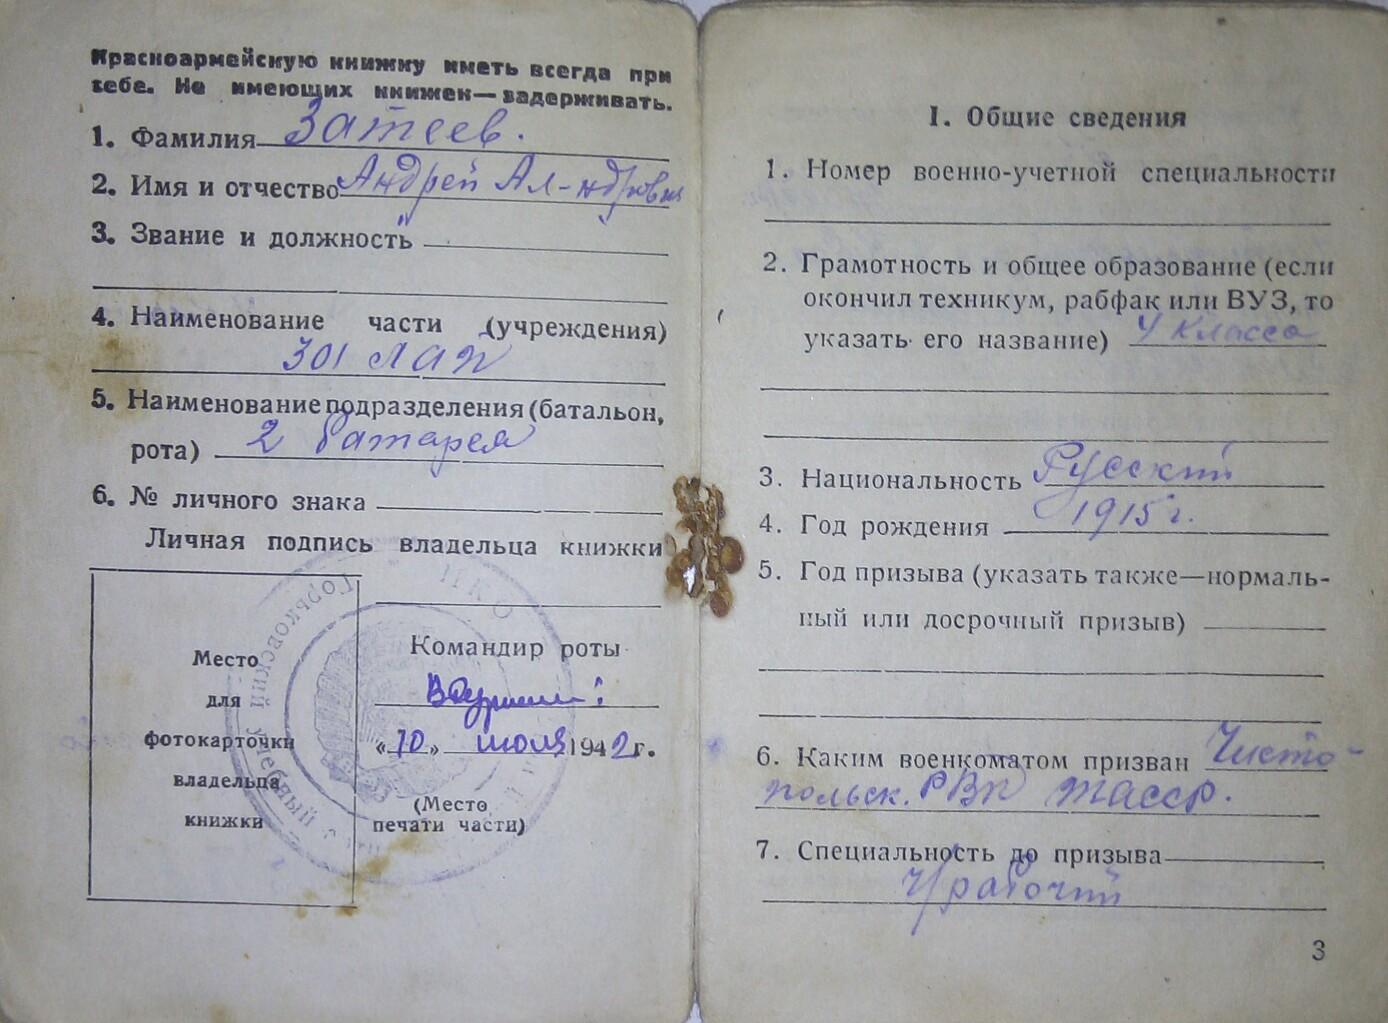 Красноармейскую книжку иметь всегда при
себе. Не имеющих книжек — задерживать.
1. Фамилия Затеев.
2. Имя и отчество Андрей Ал-ндрович
3. Звание и должность
4. Наименование части (учреждения)
301 ЛАП
5. Наименование подразделения (батальон,
рота) 2 батарея
6. № личного знака
Личная подпись владельца книжки
Место
для
фотокарточки
владельца
книжки
Командир роты
«10» июля 1942 г.
(Место
печати части)
НКО
Горьковский учебный
I. Общие сведения
1. Номер военно-учетной специальности
2. Грамотность и общее образование (если
окончил техникум, рабфак или ВУЗ, то
указать его название) 4 класса
3. Национальность Русский
4. Год рождения 1915 г.
5. Год призыва (указать также — нормаль-
ный или досрочный призыв)
6. Каким военкоматом призван Чисто-
польск. РВК ТАССР.
7. Специальность до призыва
Ч/рабочий
3